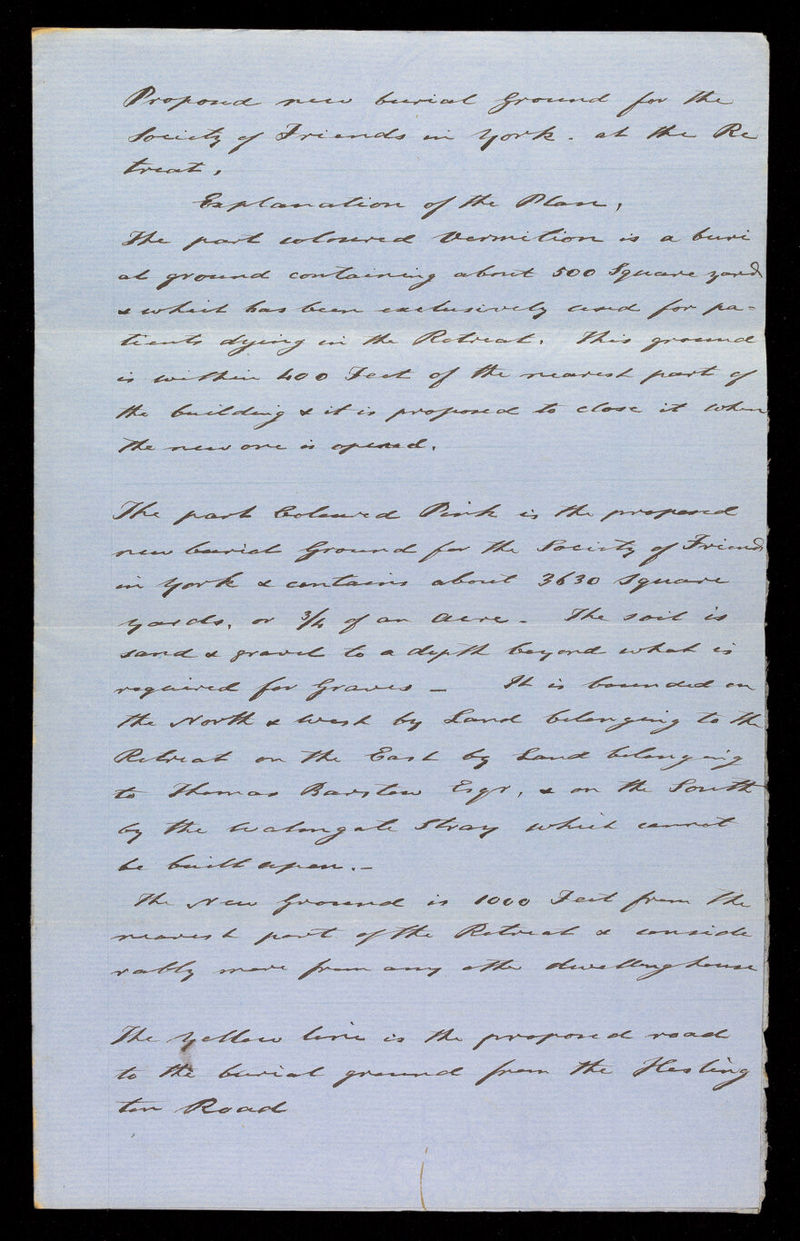 Proposed new burial Ground for the
Society of Friends in York - at the Re
treat.
Explanation of the Plan,
The part coloured Vermilion is a buri
al ground containing about 500 Square yards
& which has been exclusively used for pa-
tients dying in the Retreat. This ground
is within 400 Feet of the nearest part of
the building & it is proposed to close it when
the new one is opened.
The part Coloured Pink is the proposed
new burial Ground for the Society of Friends
in York & contains about 3630 Square
yards, or 3/4 of an Acre - The soil is
sand & gravel to a depth beyond what is
required for Graves - It is bounded on
the North & West by Land belonging to the
Retreat on the East by Land belonging
to Thomas Barstow Esqr, & on the South
by the Walmgate Stray which cannot
be built upon.-
The New Ground is 1000 Feet from the
nearest part of the Retreat & conside
rably more from any other dwelling house
The Yellow line is the proposed road
to the burial ground from the Hesling
ton Road